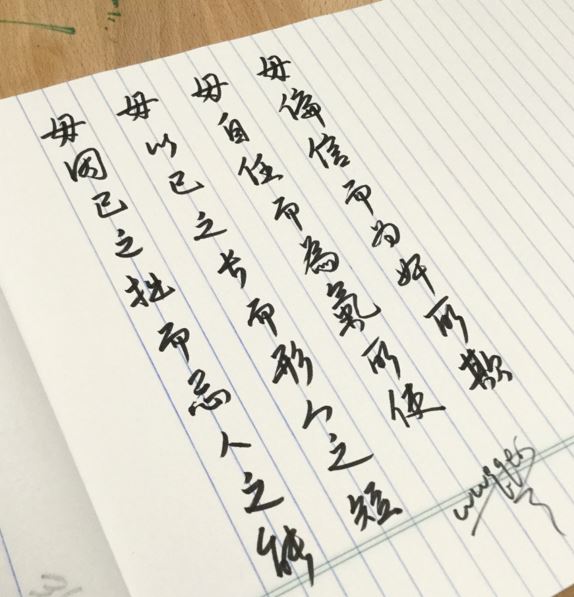 毋偏信而为奸所欺
毋自任而為氣所使
毋以己之长而形人之短
毋因己之拙而忌人之能